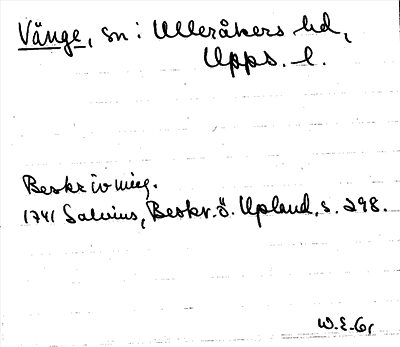 Vänge, sn i Ulleråkers hd,
Upps. l.
Beskrivning.
1741 Salvius, Beskr. ö. Upland, s. 298.
W.E.Gr